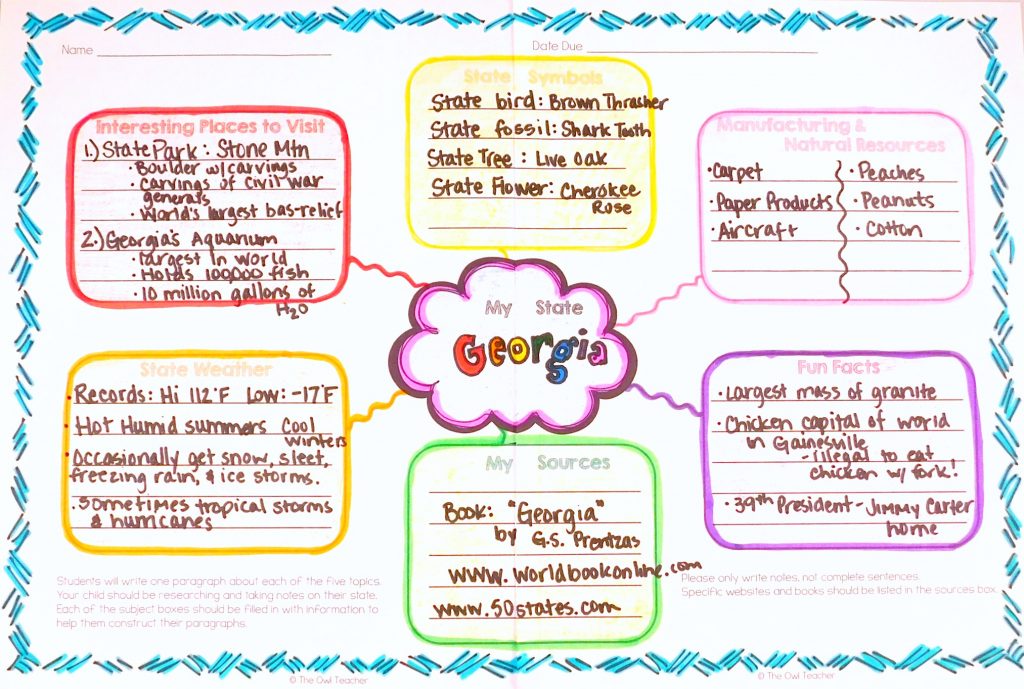 Name
Date Due
State Symbols
State bird: Brown Thrasher
State fossil: Shark Tooth
State Tree: Live Oak
State Flower: Cherokee
Rose
Interesting Places to Visit
1.) State Park: Stone Mtn
• Boulder w/carvings
• Carvings of Civil War
generals
• World's largest bas-relief
2.) Georgia's Aquarium
• largest in world
• Holds 100,000 fish
• 10 million gallons of
H₂O
Manufacturing &
Natural Resources
• Carpet
• Paper Products
• Aircraft
• Peaches
• Peanuts
• Cotton
My State
Georgia
State Weather
• Records: Hi 112°F Low: -17°F
Hot Humid summers Cool
winters
• Occasionally get snow, sleet,
freezing rain, & ice storms.
• Sometimes tropical storms
& hurricanes
Fun Facts
• Largest mass of granite
• Chicken capital of world
in Gainesville
- illegal to eat
chicken w/ fork!
• 39th President - Jimmy Carter
home
My Sources
Book: "Georgia"
by G.S. Prentzas
www.worldbookonline.com
www.50states.com
Students will write one paragraph about each of the five topics.
Your child should be researching and taking notes on their state.
Each of the subject boxes should be filled in with information to
help them construct their paragraphs.
Please only write notes, not complete sentences.
Specific websites and books should be listed in the sources box.
© The Owl Teacher
© The Owl Teacher